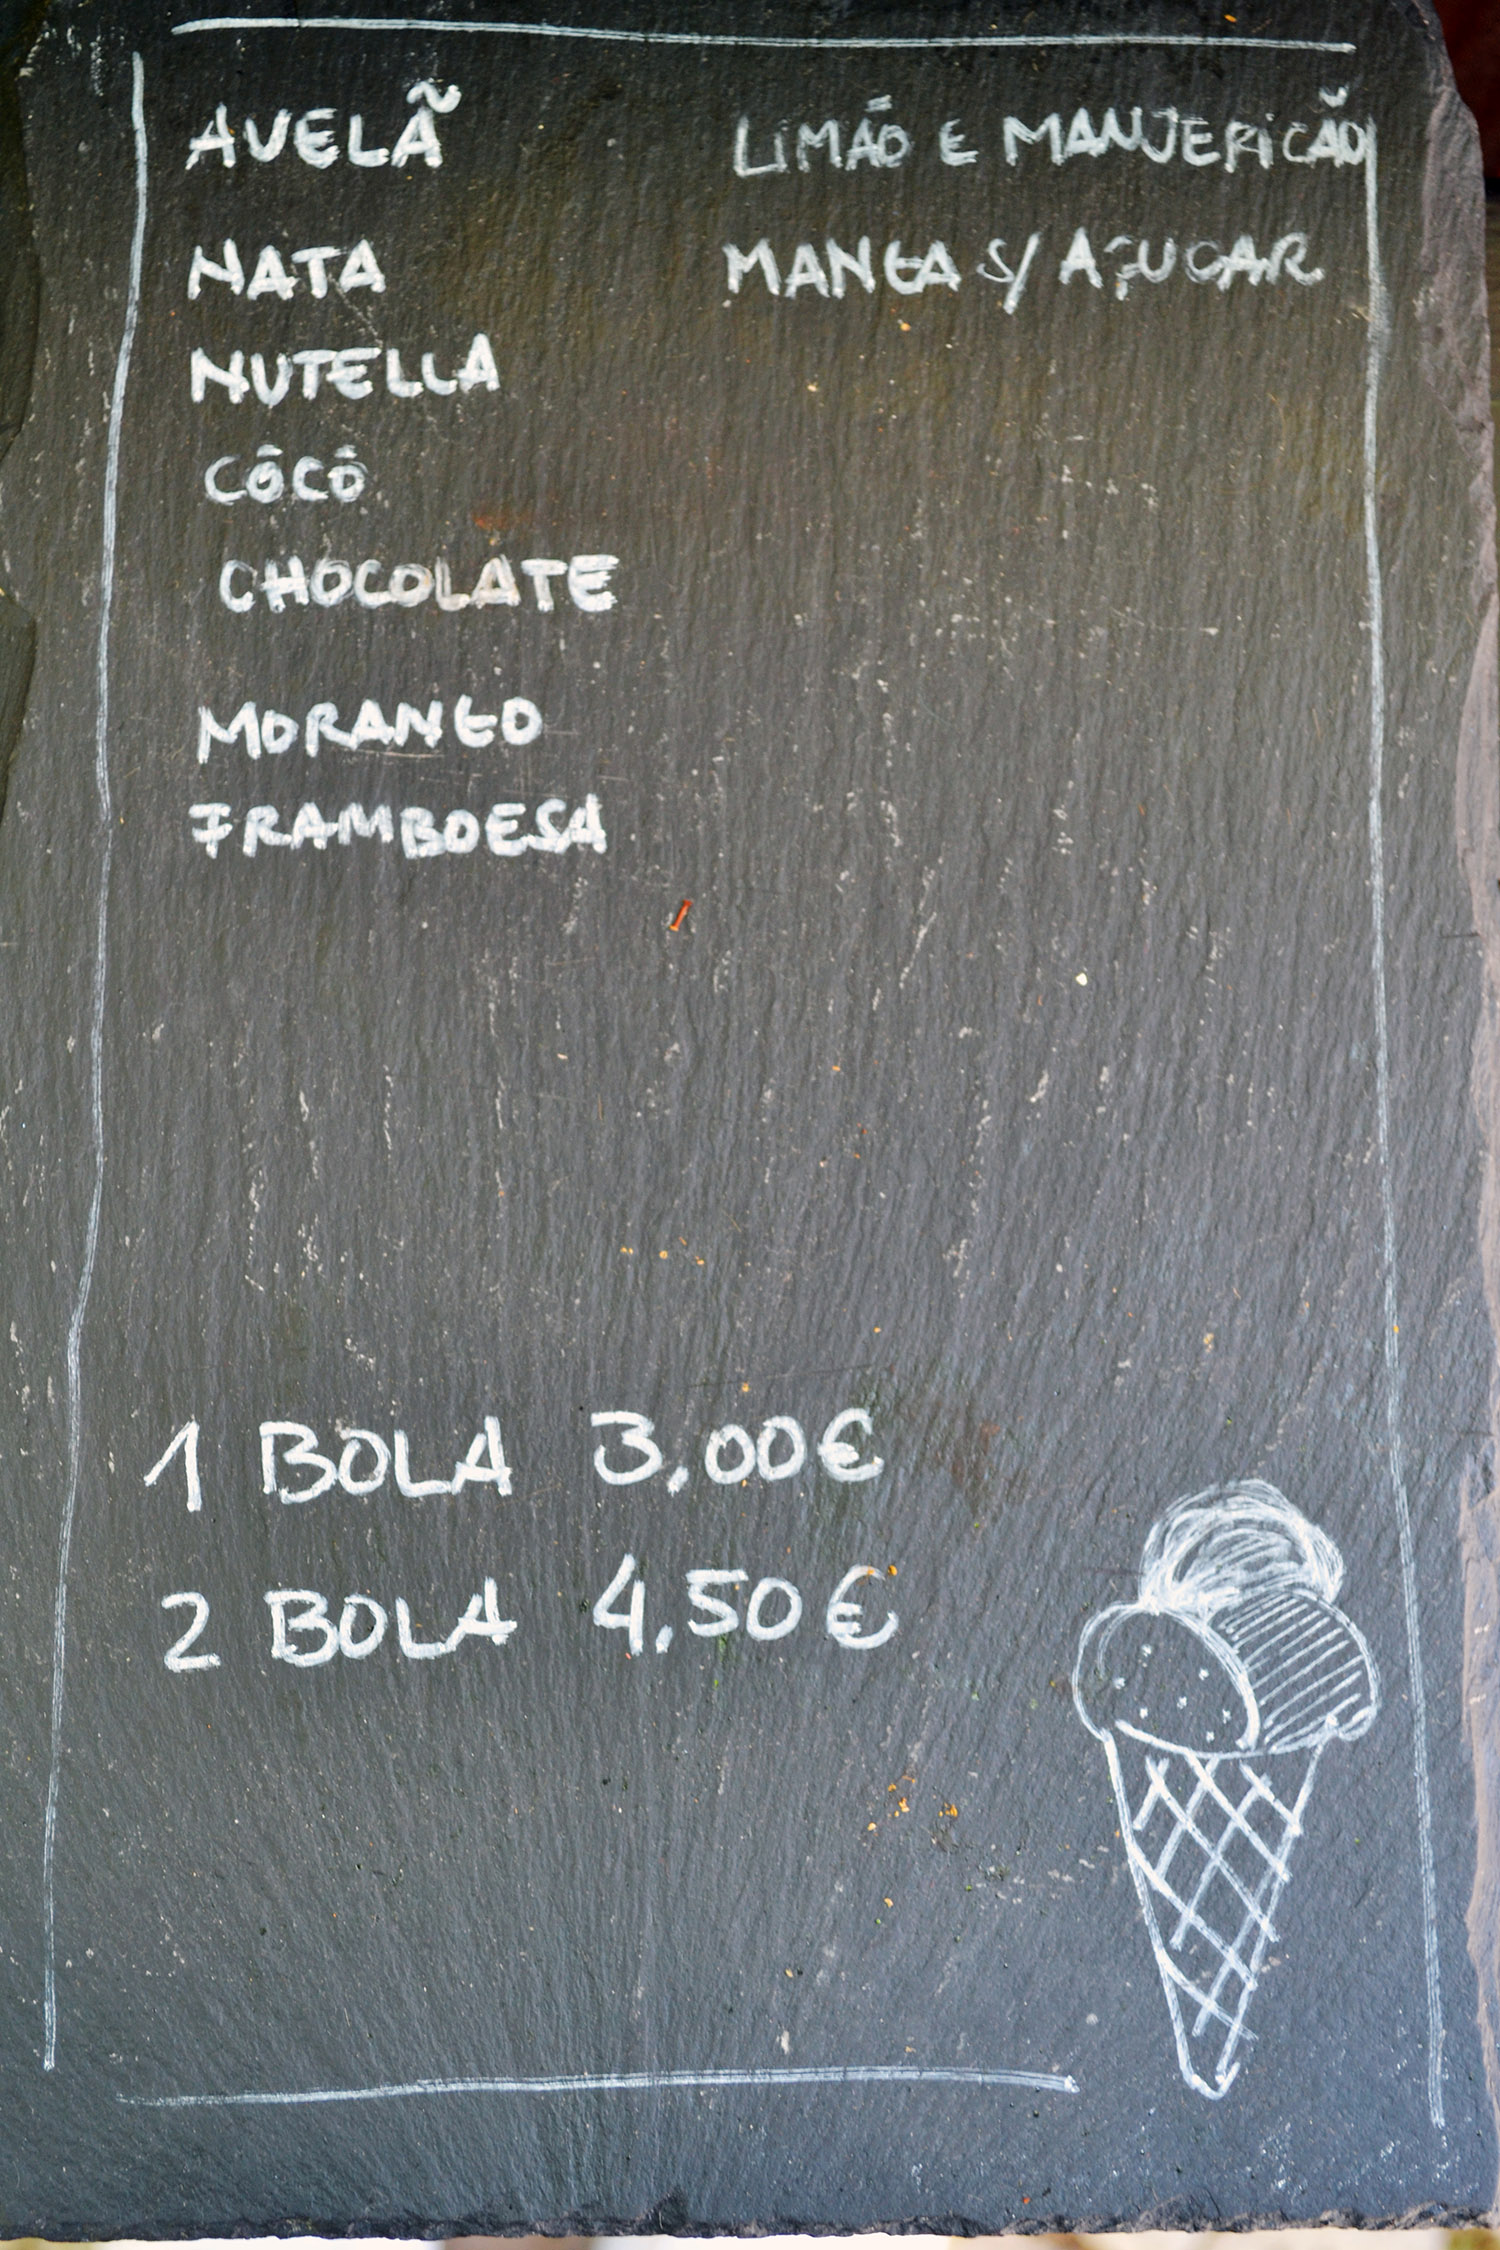 AVELÃ
NATA
NUTELLA
CÔCÔ
CHOCOLATE
MORANGO
FRAMBOESA
LIMÃO E MANJERICÃO
MANGA S/ AÇUCAR
1 BOLA 3,00€
2 BOLA 4,50€